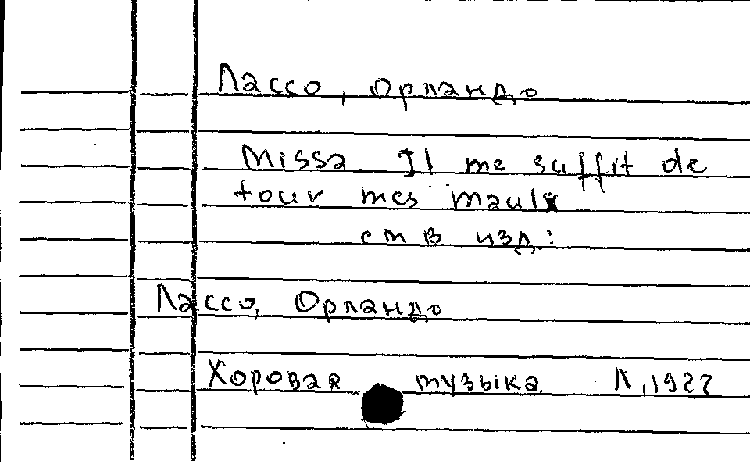 Лассо, Орландо
Missa Il me suffit de
tour mes maulx
см в изд:
Лассо, Орландо
Хоровая музыка Л, 1977